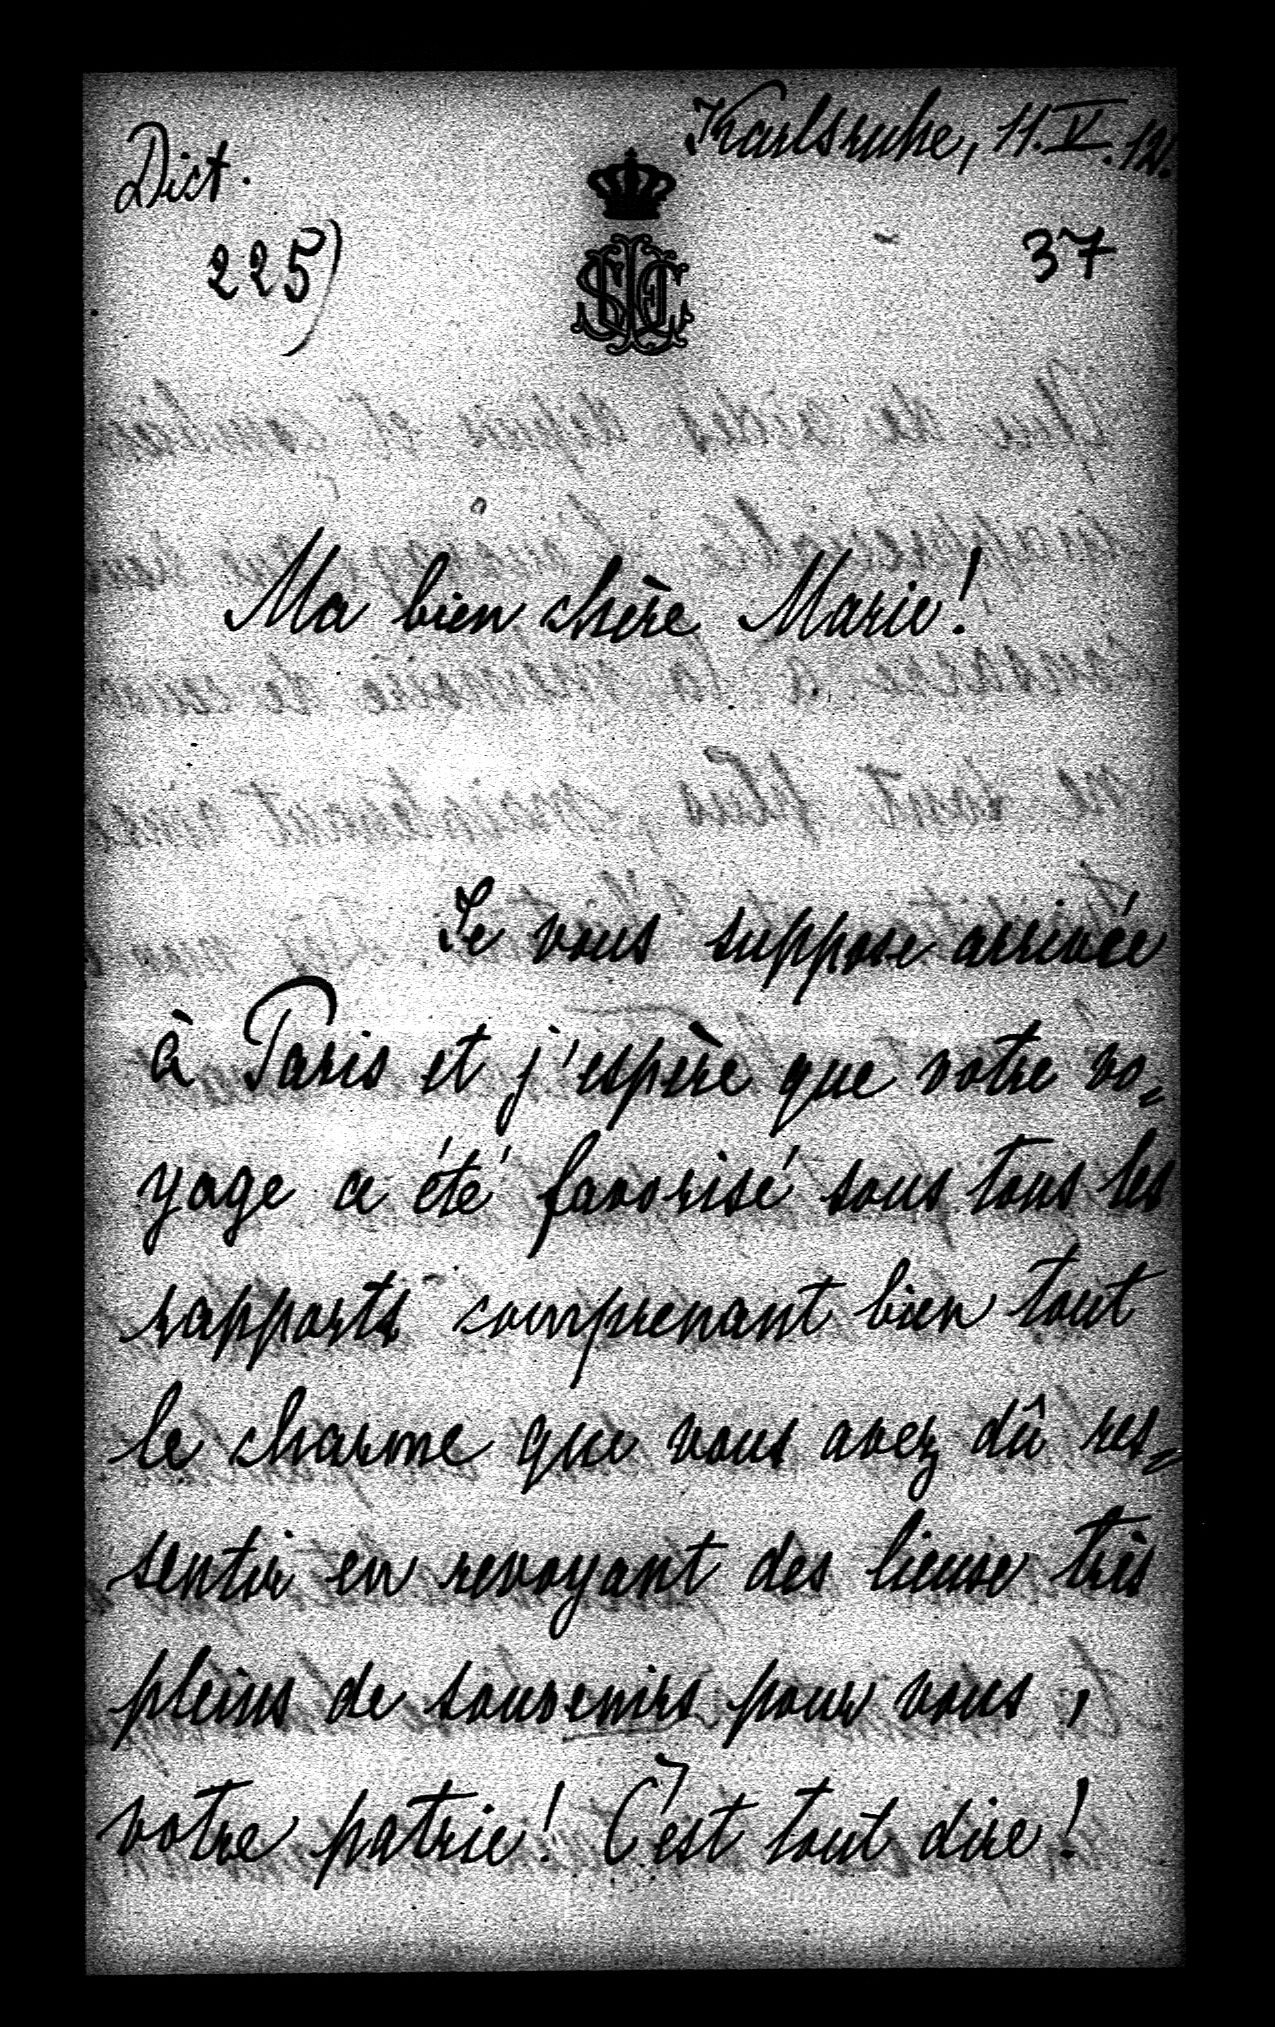 Karlsruhe, 11.V.12.
Dict.
225)
37
Ma bien chère Marie!
Je vous suppose arrivée
à Paris et j'espère que votre vo=
yage a été favorisé sous tous les
rapports comprenant bien tout
le charme que vous avez dû res=
sentir en revoyant des lieux très
pleins de souvenirs pour vous,
votre patrie! C'est tout dire!